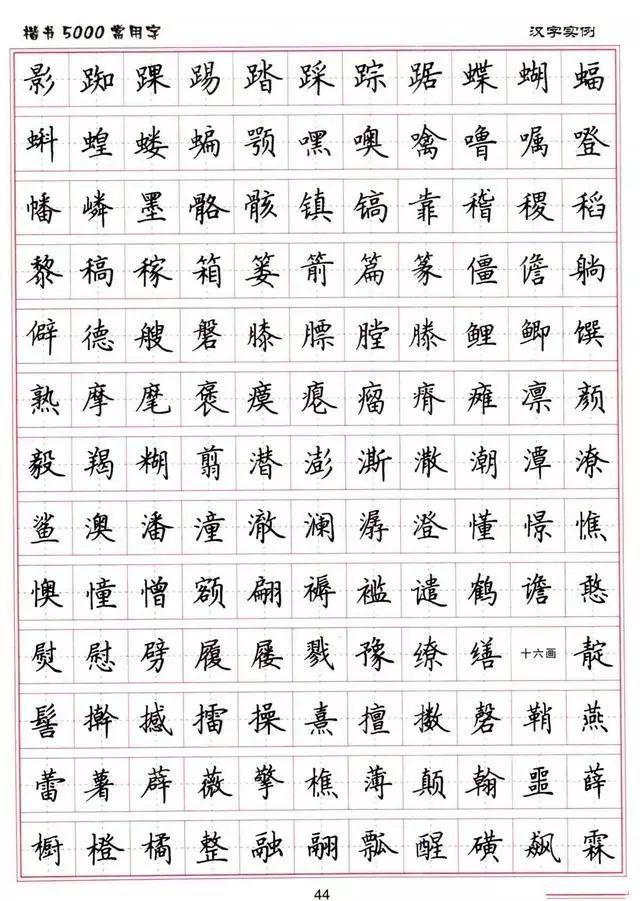 楷书5000常用字 汉字实例
影踟踝踢踏踩踪踞蝶蝴蝠
蝌蝗蝼蝙颚嘿噢噙噜嘱噔
幡嶙墨骼骸镇镐靠稽稷稻
黎稿稼箱篓箭篇篆僵儋躺
僻德艘磐膝膘膛滕鲤鲫馔
熟摩麾褒瘼瘪瘤瘠瘫凛颜
毅羯糊翦潜澎澌潵潮潭潦
鲨澳潘潼澈澜潺澄懂憬憔
懊憧憎额翩褥褴谴鹤谵憨
熨慰劈履屦戮豫缭缮十六画靛
髻擀撼擂操熹擅擞磬鞘燕
蕾薯薜薇擎樵薄颠翰噩薛
橱橙橘整融翮瓢醒磺飙霖
44